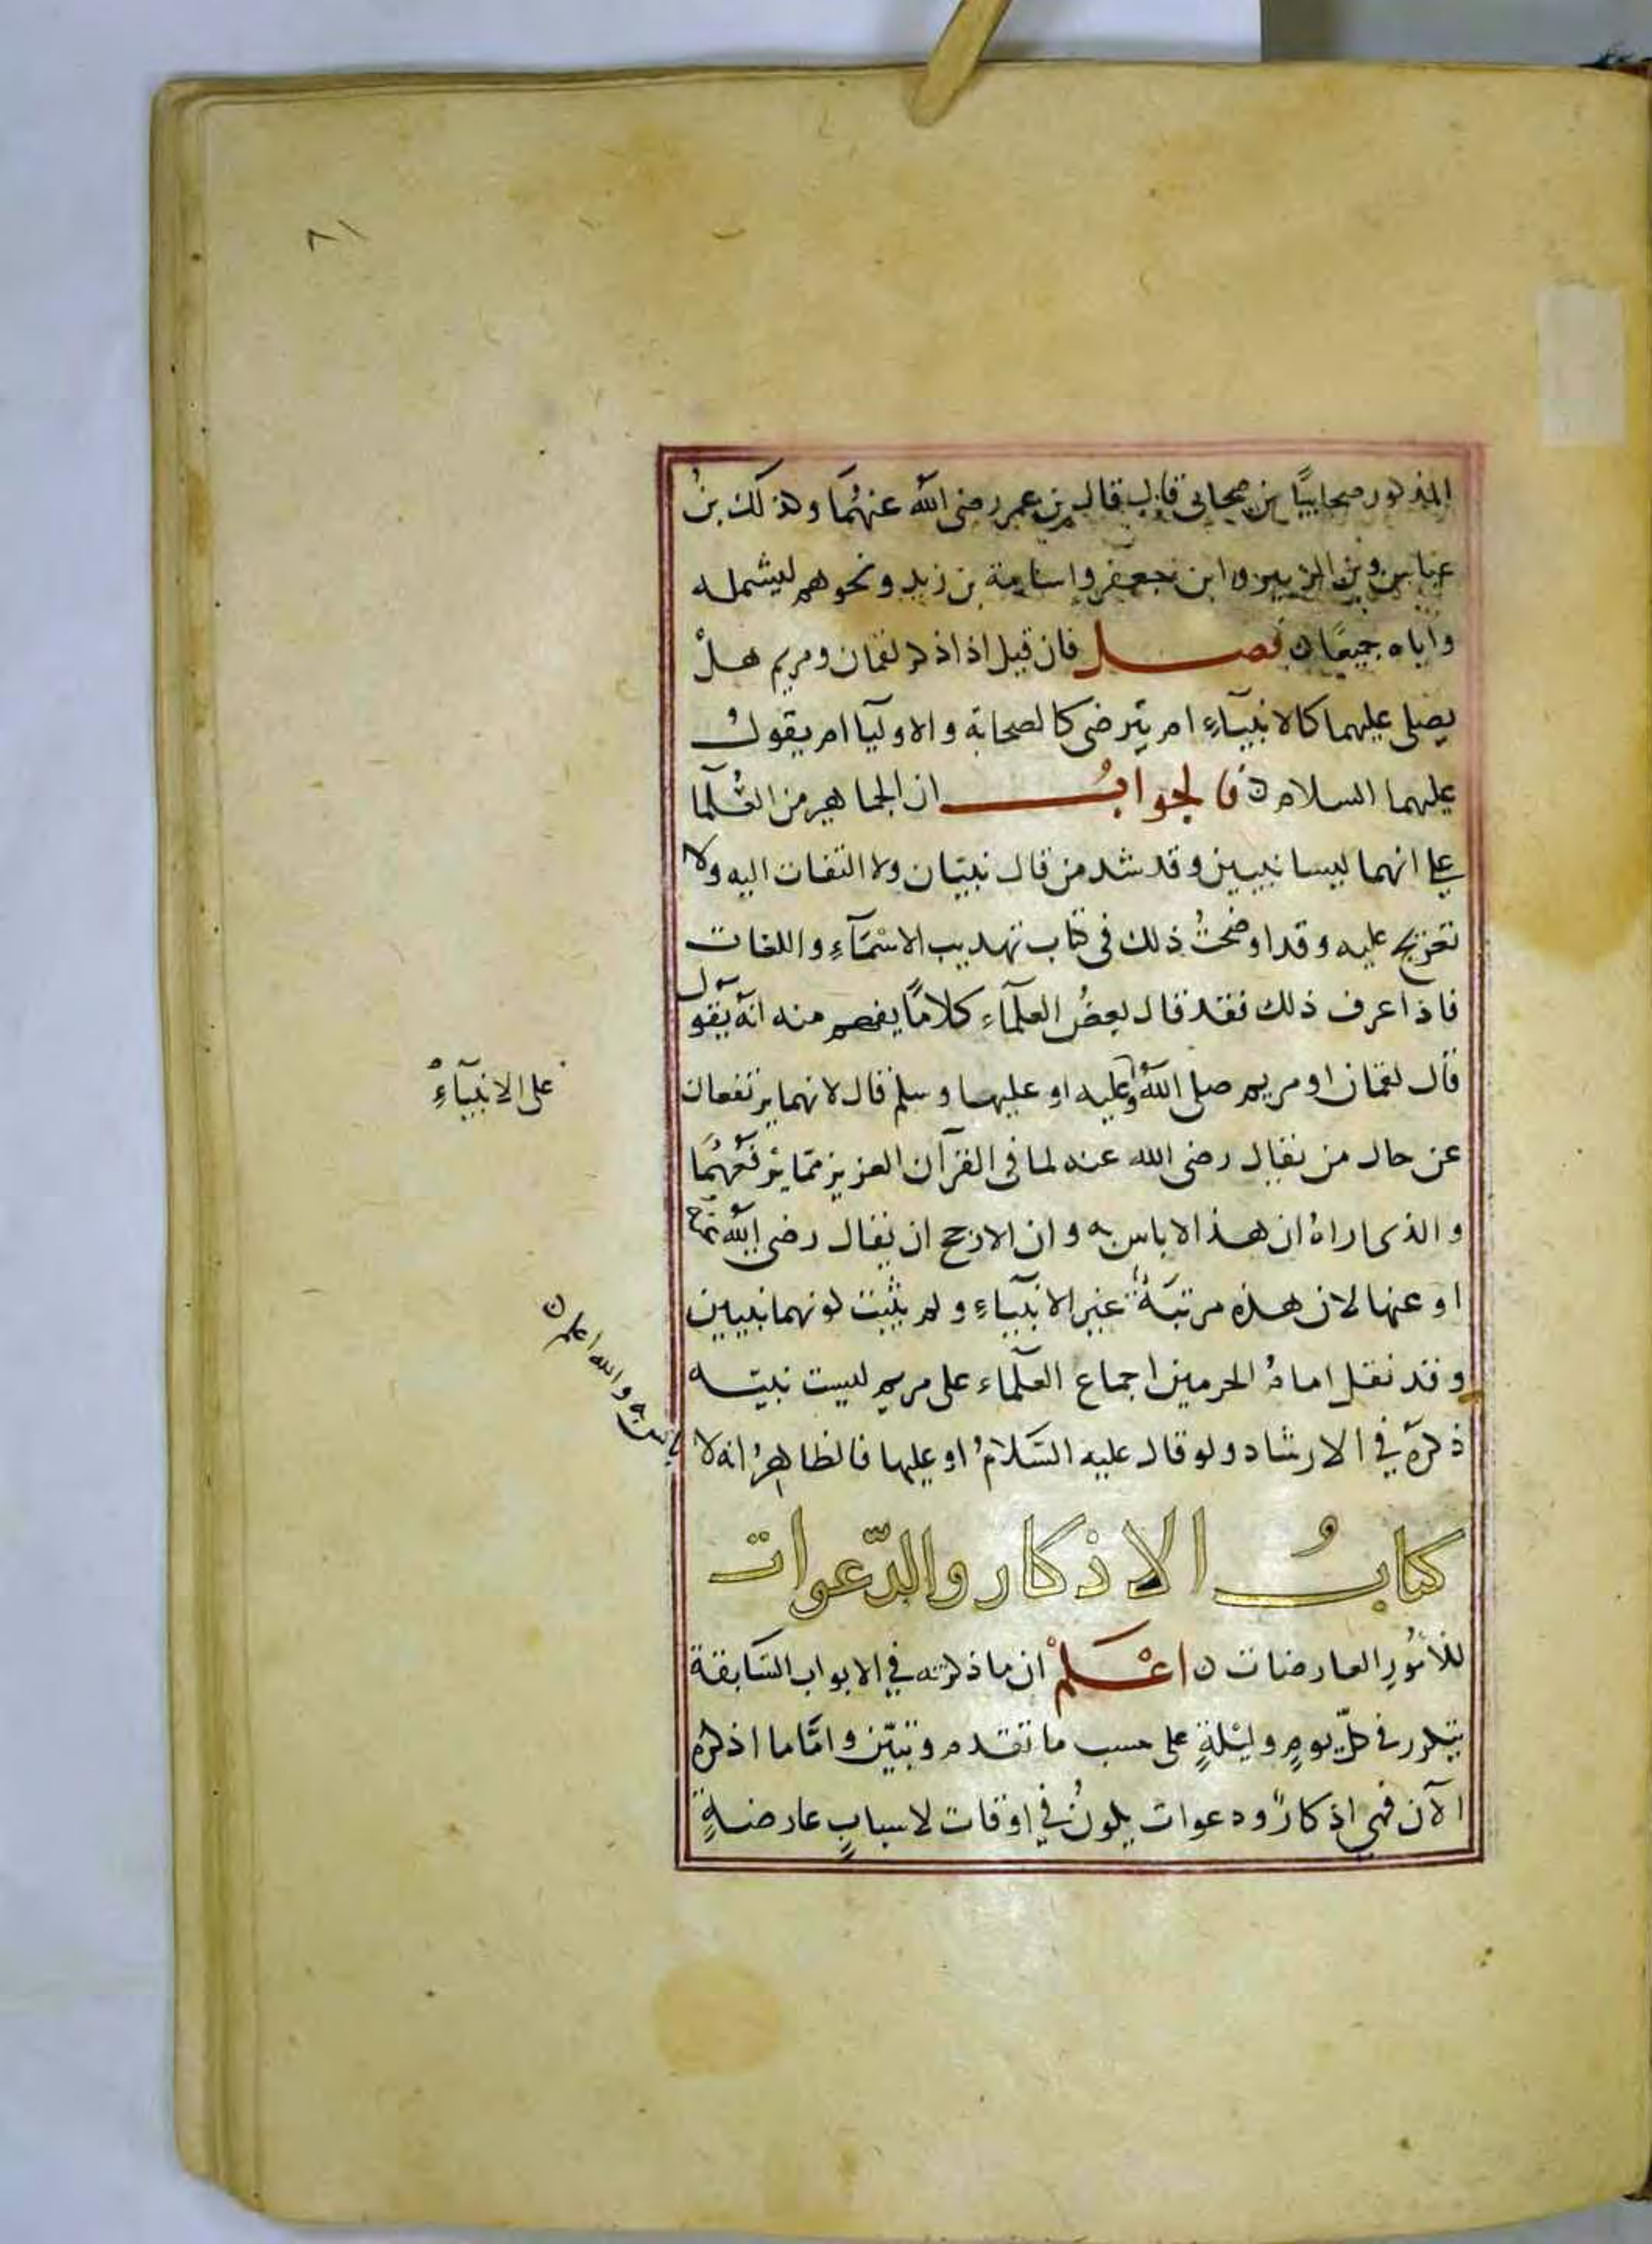 ٨١
المذكور صحابيًا بن صحابى قال قال بن عمر رضى الله عنهُمَا وكذلك بنُ
عباس وبن الزبير وابن جعفر واسامة بن زيد ونحوهم ليشمله
واباه جميعًا ن فصل فان قيل اذا ذكر لقمان ومريم هلْ
يصلى عليهما كالانبيآءِ ام يترضى كالصحابة والاوليآ ام يقولُ
عليهما السلام ن فالجوابُ ان الجماهير من العُلمآ
على انهما ليسا نبيين وقد شد من قال نبيّان ولا التفات اليه ولا
تعريج عليه وقد اوضحتُ ذلك فى كتاب تهذيب الاسْمَآءِ واللغات
فاذا عرف ذلك فقد قال بعضُ العلمآء كلامًا يفهم منه انه يقول
قال لقمان او مريم صلى الله وعليه او عليها وسلم قال لانهما يرتفعان
على الانبيآءُ
عن حال من يقال رضى الله عنه لما فى القرآن العزيز مما يرفعهُمَا
والذى اراهُ ان هذا لا باس به وان الارجح ان يقال رضى الله عنه
او عنها لان هذه مرتبَةُ غير الانبيآءِ ولم يثبت كونهما نبيين
وقد نقل امامُ الحرمين اجماع العلمآء على مريم ليست نبيّه
ذكرَهُ في الارشاد ولو قال عليه السَلامُ او عليها فالظاهرُ انه لا
باس به والله اعلم ن
كتابُ الاذكار والدّعوات
للأمُورِ العارضات ن اعْلمْ ان ما ذكرته في الابواب السَابقة
يتكرر في كلّ يومٍ وليْلةٍ على حسب ما تقدم وتبيّن وامَّا ما اذكره
الآن فهي اذكارٌ ودعوات يكونُ في اوقات لاسبابٍ عارضةٍ